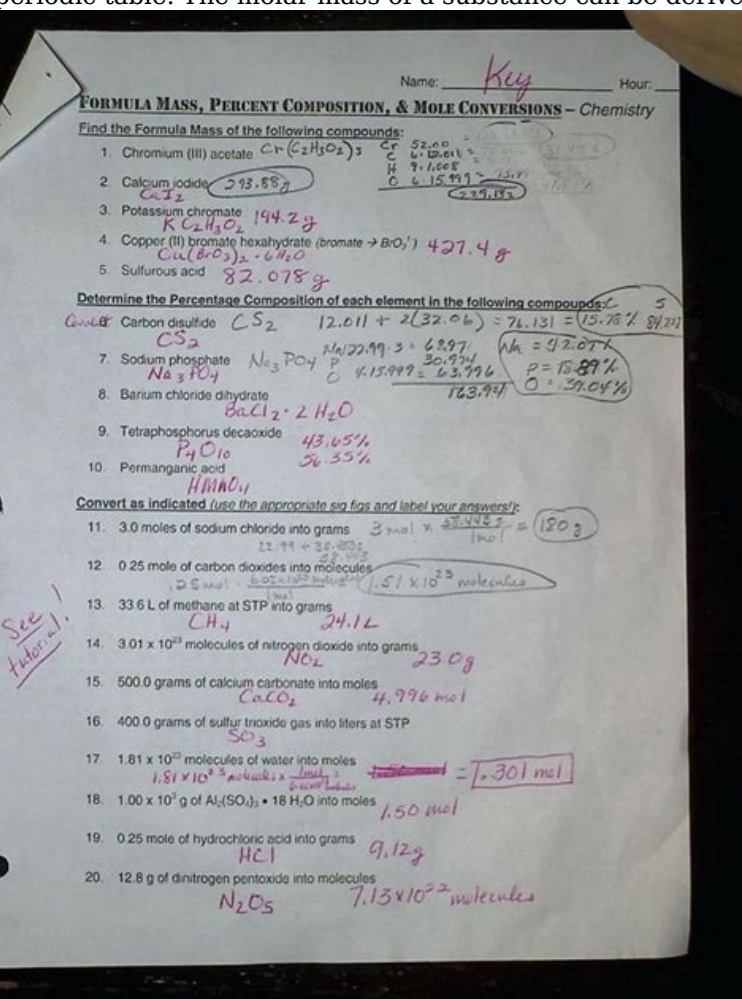 periodic table. The molar mass of a substance can be derive
Name: Key Hour:
FORMULA MASS, PERCENT COMPOSITION, & MOLE CONVERSIONS – Chemistry
Find the Formula Mass of the following compounds:
1. Chromium (III) acetate Cr(C2H3O2)3 Cr 52.00
C 6·12.011 =
H 9·1.008
O 6·15.999
229.13
2. Calcium iodide 293.88g
CaI2
3. Potassium chromate 194.2g
KC2H3O2
4. Copper (II) bromate hexahydrate (bromate → BrO3') 427.4 g
Cu(BrO3)2 · 6H2O
5. Sulfurous acid 82.078g
Determine the Percentage Composition of each element in the following compounds: C S
Carbon disulfide CS2 12.011 + 2(32.06) = 76.131 = 15.78% 84.22%
CS2
7. Sodium phosphate Na3PO4 Na 22.99·3 = 68.97
P 30.974
O 4·15.999 = 63.996
163.94
Na = 42.07%
P = 18.89%
O = 39.04%
Na3PO4
8. Barium chloride dihydrate
BaCl2 · 2 H2O
9. Tetraphosphorus decaoxide 43.65%
P4O10 56.35%
10. Permanganic acid
HMnO4
Convert as indicated (use the appropriate sig figs and label your answers!):
11. 3.0 moles of sodium chloride into grams 3 mol x 58.443 g / 1mol = 180g
22.99 + 35.453 =
58.443
12. 0.25 mole of carbon dioxides into molecules
.25 mol 1.51 x 10^23 molecules
13. 33.6 L of methane at STP into grams
CH4 24.1L
See !
tutorial.
14. 3.01 x 10^23 molecules of nitrogen dioxide into grams
NO2 23.0g
15. 500.0 grams of calcium carbonate into moles
CaCO2 4.996 mol
16. 400.0 grams of sulfur trioxide gas into liters at STP
SO3
17. 1.81 x 10^23 molecules of water into moles
1.81 x 10^23 molecules x 1mol = .301 mol
18. 1.00 x 10^3 g of Al2(SO4)3 • 18 H2O into moles 1.50 mol
19. 0.25 mole of hydrochloric acid into grams
HCl 9.12g
20. 12.8 g of dinitrogen pentoxide into molecules
N2O5 7.13 x 10^22 molecules